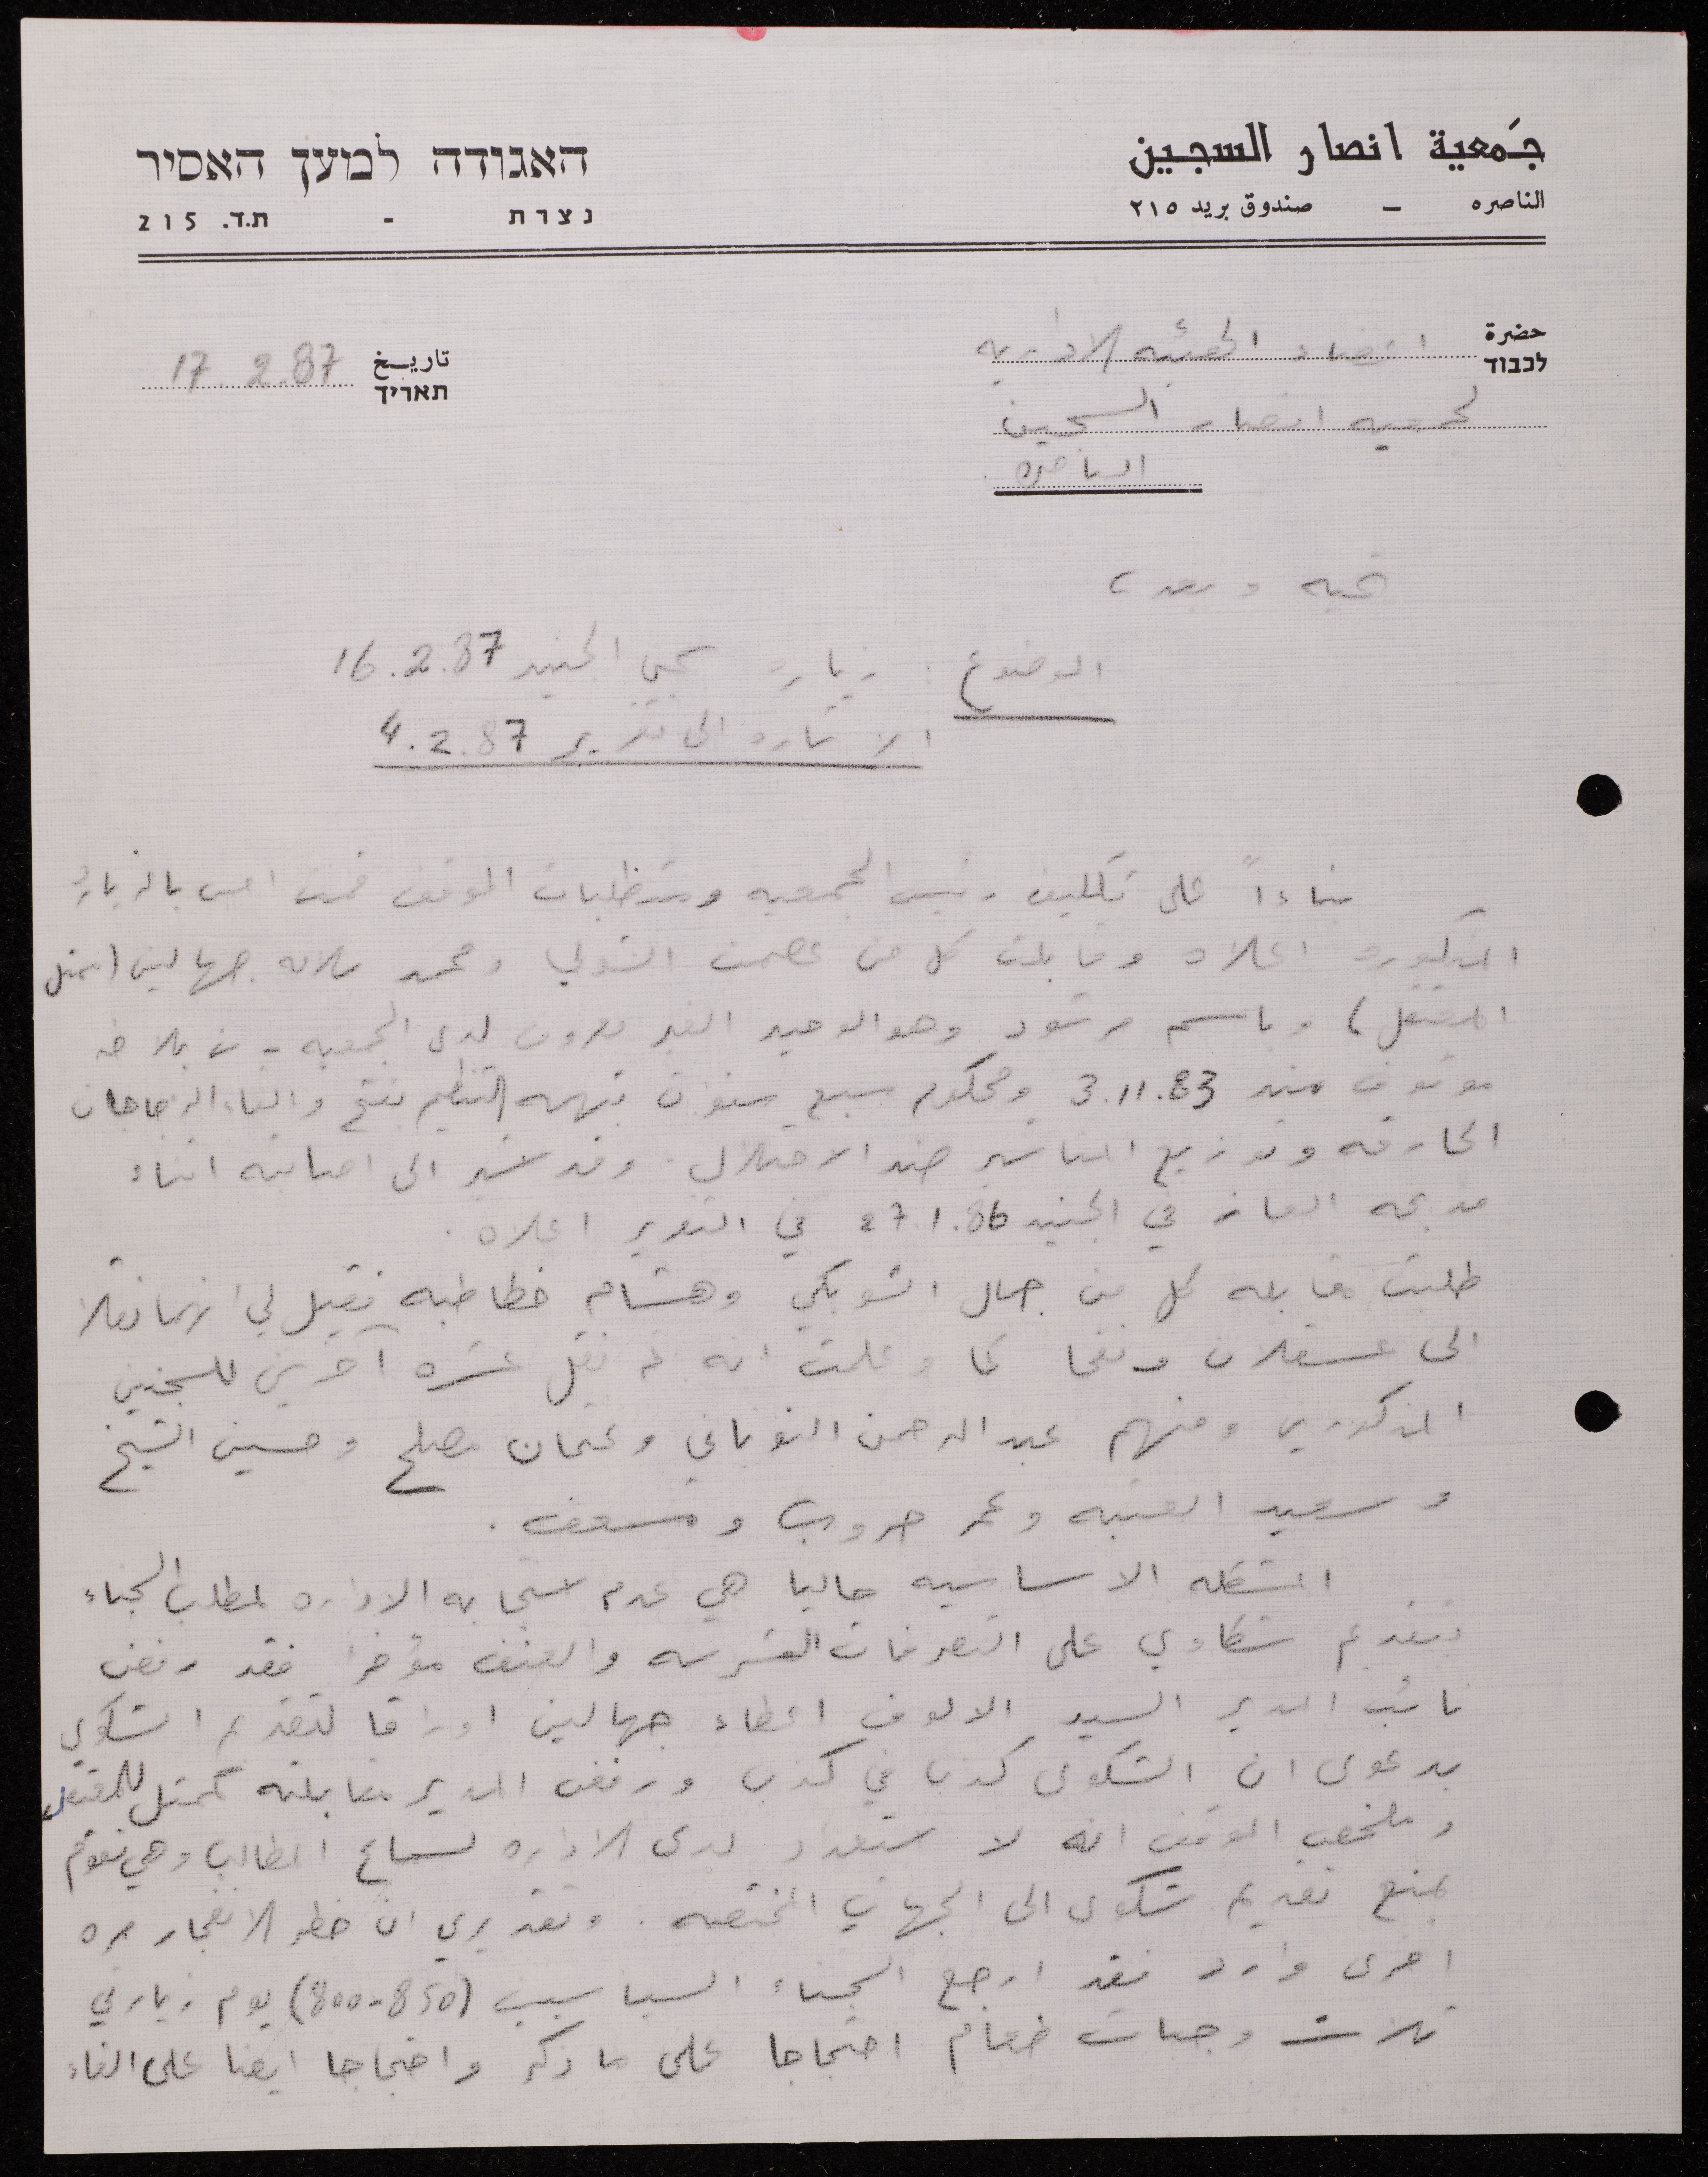 جمعية انصار السجين
الناصره – صندوق بريد ٢١٥
האגודה למען האסיר
נצרת - ת.ד. 215
حضرة
לכבוד
اعضاء الهيئه الاداريه
لجمعيه انصار السجين
الناصره
تاريخ
תאריך
17.2.87
تحيه وبعد،
الموضوع: زيارة سجن الجنيد 16.2.87
الاشاره الى تقرير 4.2.87
بناءاً على تكليف رئيس الجمعيه ومتطلبات الموقف قمت امس بالزيارة
المذكوره اعلاه وقابلت كل من عصمت الشولي ومحمد سلامه جهالين (ممثل
المعتقل) وباسم مرشود وهو الوحيد الغير معروف لدى الجمعيه - من بلاطه
موقوف منذ 3.11.83 ومحكوم سبع سنوات بتهمه التنظيم بفتح والقاء الزجاجات
الحارقه وتوزيع المناشير ضد الاحتلال. وقد اشير الى اصابته اثناء
مذبحه الغاز في الجنيد 27.1.86 في التقرير اعلاه.
طلبت مقابله كل من جمال الشوبكي وهشام خطاطبه فقيل لي انهما نقلا
الى عسقلان ونفحا كما وعلمت انه تم نقل عشره آخرين للسجنين
المذكورين ومنهم عبد الرحمن النوباني وعثمان مصلح وحسين الشيخ
وسعيد العتبه وعمر حروب ومسعف.
المشكله الاساسيه حاليا هي عدم استجابه الاداره لمطالب السجناء
بتقديم شكاوي على التصرفات الشرسه والعنف مؤخرا فقد رفض
نائب المدير السيد الالوف اعطاء جهالين اوراقا لتقديم الشكوى
بدعوى ان الشكوى كذب في كذب ورفض المدير مقابلته كممثل للمعتقل
وملخص الموقف انه لا استعداد لدى الاداره لسماع المطالب وهي تقوم
بمنع تقديم شكوى الى الجهات المختصه. وتقديري ان خطر الانفجار مره
اخرى وارد فقد ارجع السجناء السياسيين (800-850) يوم زيارتي
ثلاث وجبات طعام احتجاجا على ما ذكر واحتجاجا ايضا على الغاء